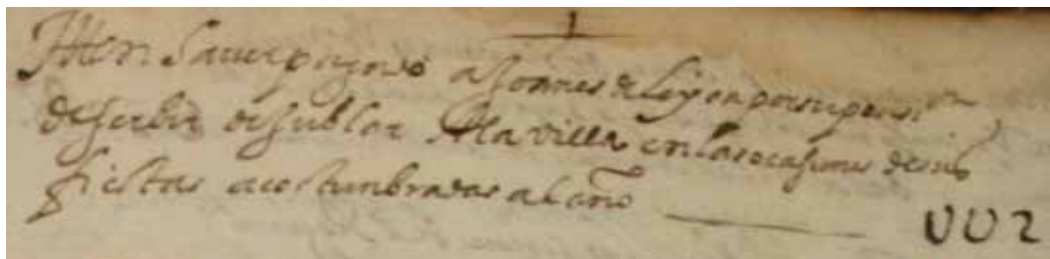 Itten Saver pagado a Joanes de Leyça por su pens.on
de Serbir de Jublar A la villa en las ocasiones de sus
fiestas acostumbradas al año
002